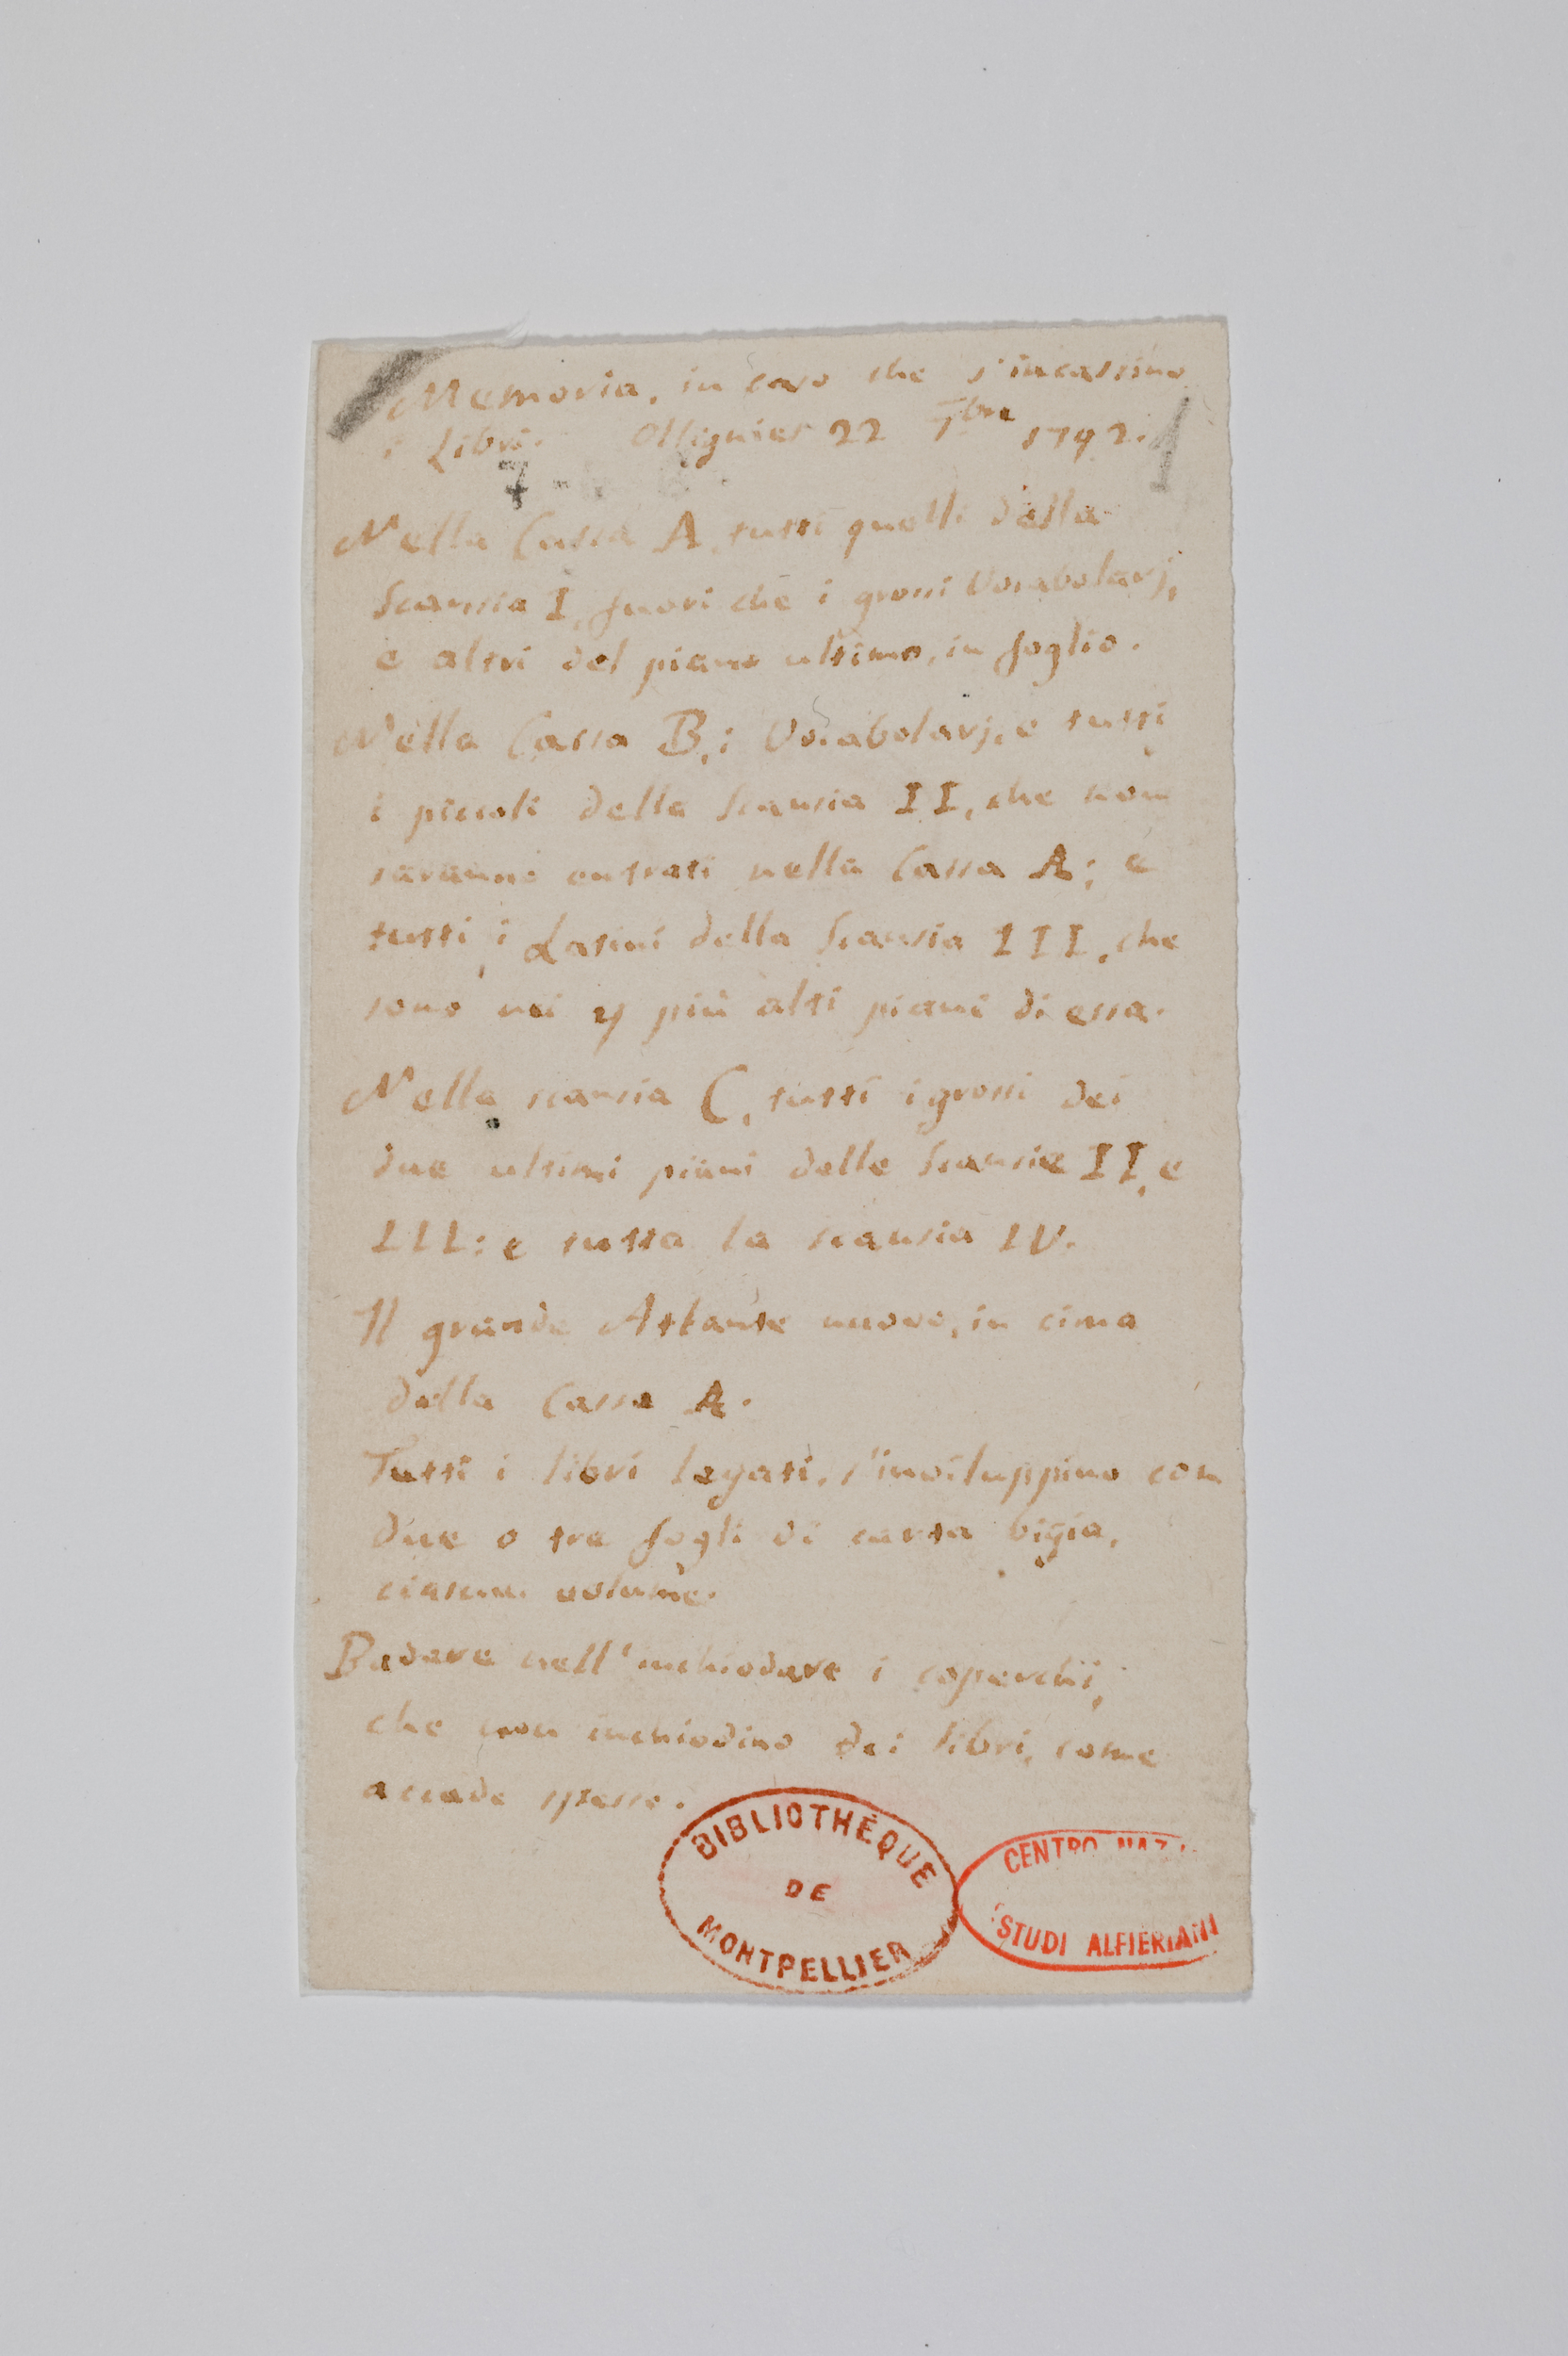 Memoria, in caso che s'incassino
i Libri. Ollignies 22 7bre 1792.
7
Nella Cassa A, tutti quelli della
Scansia I, fuori che i grossi Vocabolarj,
e altri del piano ultimo, in foglio.
Nella Cassa B, i Vocabolarj, e tutti
i piccoli della Scansia II, che non
saranno entrati nella Cassa A; e
tutti i Latini della Scansia III, che
sono nei 4 più alti piani di essa.
Nella scansia C, tutti i grossi dei
due ultimi piani delle Scansie II, e
III: e tutta la scansia IV.
Il grande Atlante nuovo, in cima
della Cassa A.
Tutti i libri legati, s'inviluppino con
due o tre fogli di carta bigia,
ciascun volume.
Badare nell'inchiodare i coperchi,
che non inchiodino dei libri, come
accade spesso.
BIBLIOTHÈQUE
DE
MONTPELLIER
CENTRO NAZ.
STUDI ALFIERIANI